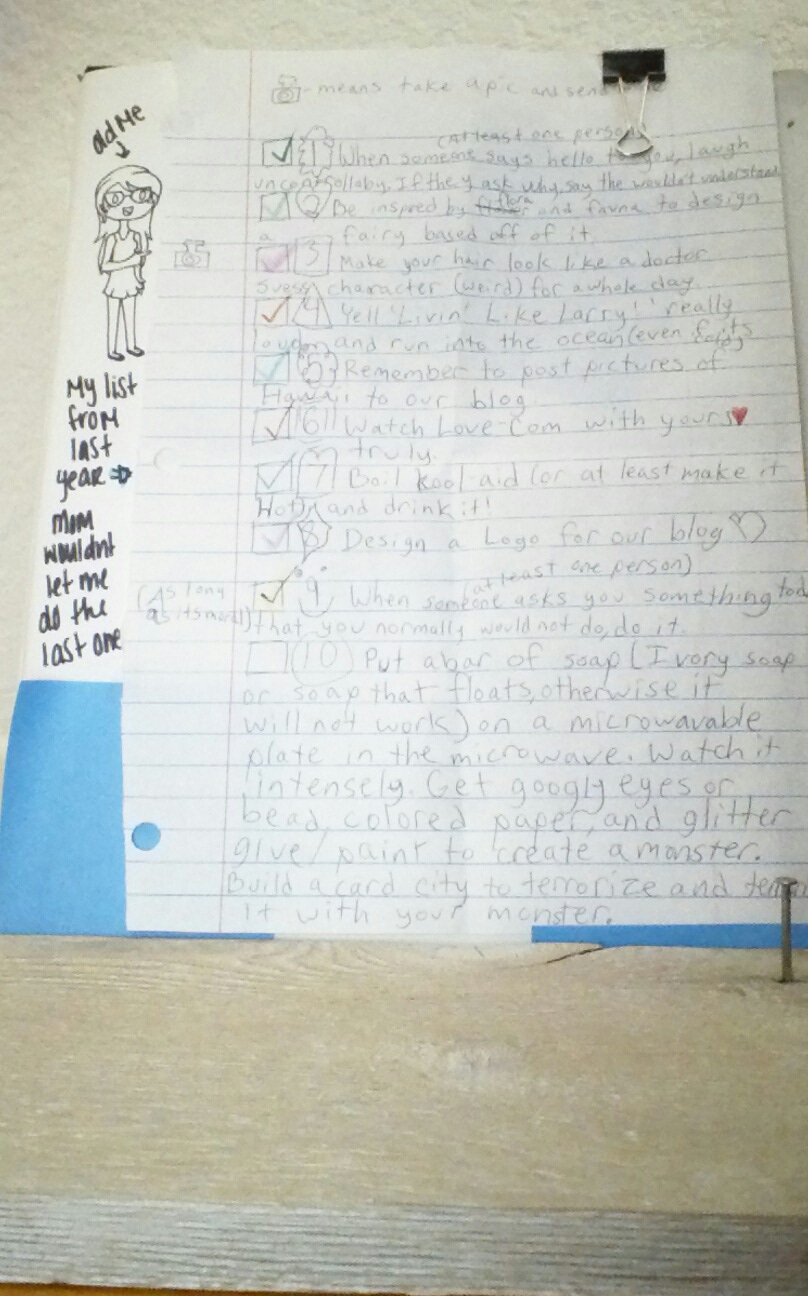 old Me
My list
from
last
year
mom
wouldnt
let me
do the
last one
- means take a pic and send
(At least one person)
1 When someone says hello to you, laugh
uncontrollaby. If they ask why, say the wouldn't understand
flora
2 Be inspired by and fauna to design
a fairy based off of it.
3 Make your hair look like a doctor
suess character (weird) for a whole day
4 Yell 'Livin' Like Larry!' really
loud and run into the ocean (even
5 Remember to post pictures of
Hawaii to our blog.
6 Watch Love Com with yours
truly.
7 Boil kool aid (or at least make it
Hot) and drink it!
8 Design a Logo for our blog
(at least one person)
(As long
as its moral)
9 When someone asks you something tod
that you normally would not do, do it.
10 Put a bar of soap (Ivory soap
or soap that floats, otherwise it
will not work) on a microwavable
plate in the microwave. Watch it
intensely. Get googly eyes or
bead, colored paper, and glitter
glue/paint to create a monster.
Build a card city to terrorize and
it with your monster.